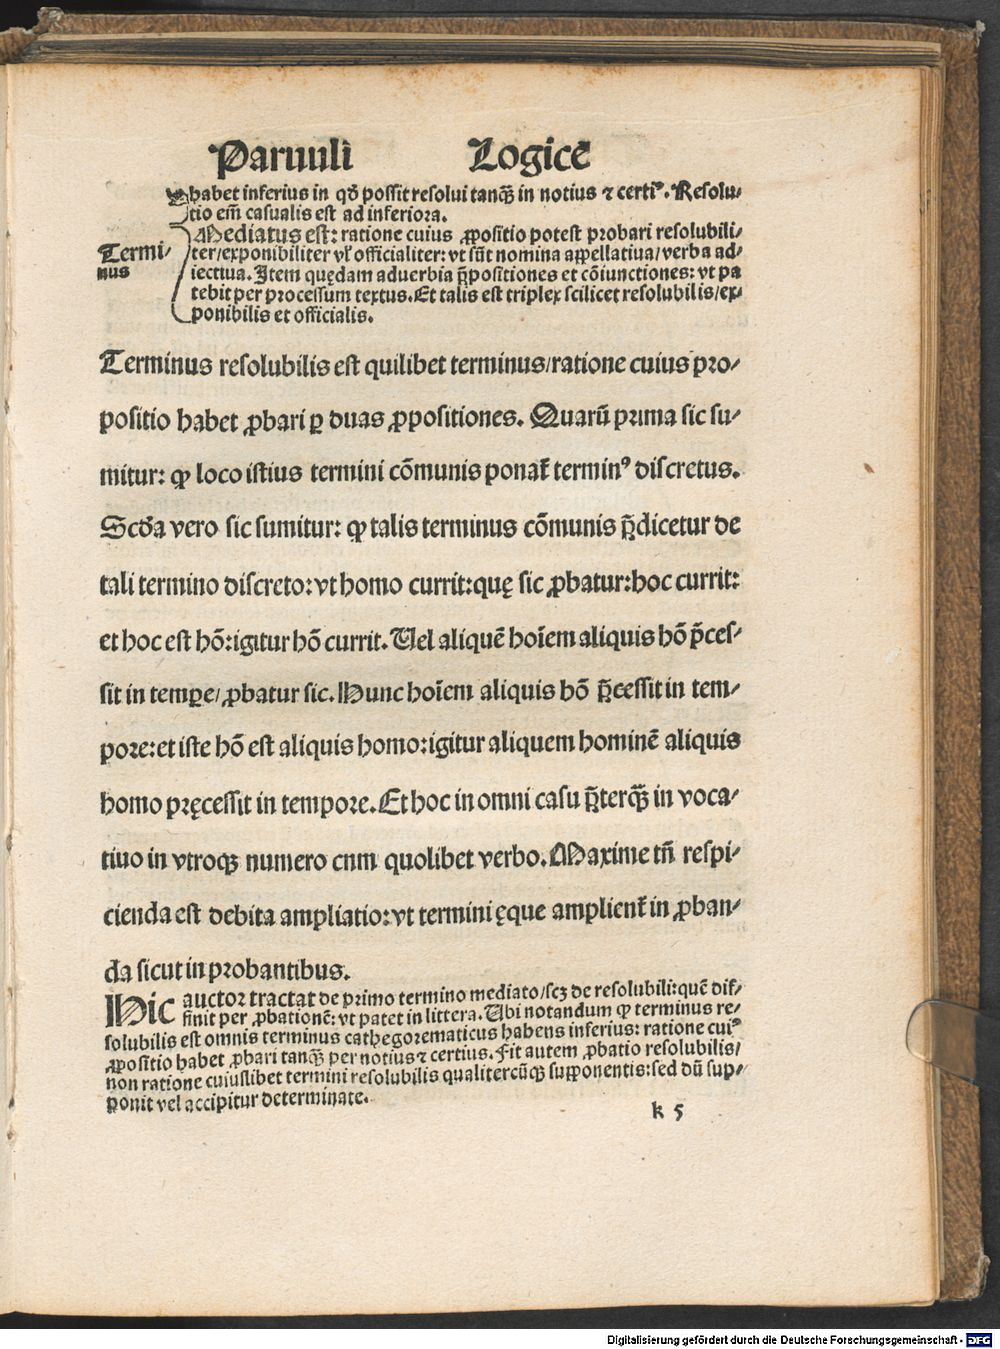 Paruuli Logice
habet inferius in qď possit resolui tanq̃ in notius ⁊ certiꝰ. Resolu⸗
tio em̃ casualis est ad inferiora.
Mediatus est: ratione cuius ꝓpositio potest probari resolubili⸗
ter/exponibiliter vl' officialiter: vt sũt nomina appellatiua/verba ad⸗
iectiua. Item quędam aduerbia p̃positiones et cõiunctiones: vt pa
tebit per processum textus. Et talis est triplex scilicet resolubilis/ex⸗
ponibilis et officialis.
Termi⸗
nus
Terminus resolubilis est quilibet terminus/ratione cuius pro⸗
positio habet ꝓbari ꝑ duas ꝓpositiones. Quarũ prima sic su⸗
mitur: ꝙ loco istius termini cõmunis ponat̃ terminꝰ discretus.
Scďa vero sic sumitur: ꝙ talis terminus cõmunis p̃dicetur de
tali termino discreto: vt homo currit: quę sic ꝓbatur: hoc currit:
et hoc est hõ: igitur hõ currit. Uel aliquẽ hoĩem aliquis hõ p̃ces⸗
sit in tempꝑe/ ꝓbatur sic. Hunc hoĩem aliquis hõ p̃cessit in tem⸗
pore: et iste hõ est aliquis homo: igitur aliquem hominẽ aliquis
homo pręcessit in tempore. Et hoc in omni casu p̃terq̃ in voca⸗
tiuo in vtroqꝫ numero cnm quolibet verbo. Maxime tñ respi⸗
cienda est debita ampliatio: vt termini ęque amplient̃ in ꝓban⸗
da sicut in probantibus.
Hic auctor tractat de primo termino mediato/scꝫ de resolubili: quẽ dif⸗
finit per ꝓbationẽ: vt patet in littera. Ubi notandum ꝙ terminus re⸗
solubilis est omnis terminus cathegorematicus habens inferius: ratione cuiꝰ
ꝓpositio habet ꝓbari tanq̃ per notius ⁊ certius. Fit autem ꝓbatio resolubilis/
non ratione cuiuslibet termini resolubilis qualitercũqꝫ supponentis: sed dũ sup⸗
ponit vel accipitur determinate.
k 5
Digitalisierung gefördert durch die Deutsche Forschungsgemeinschaft - DFG